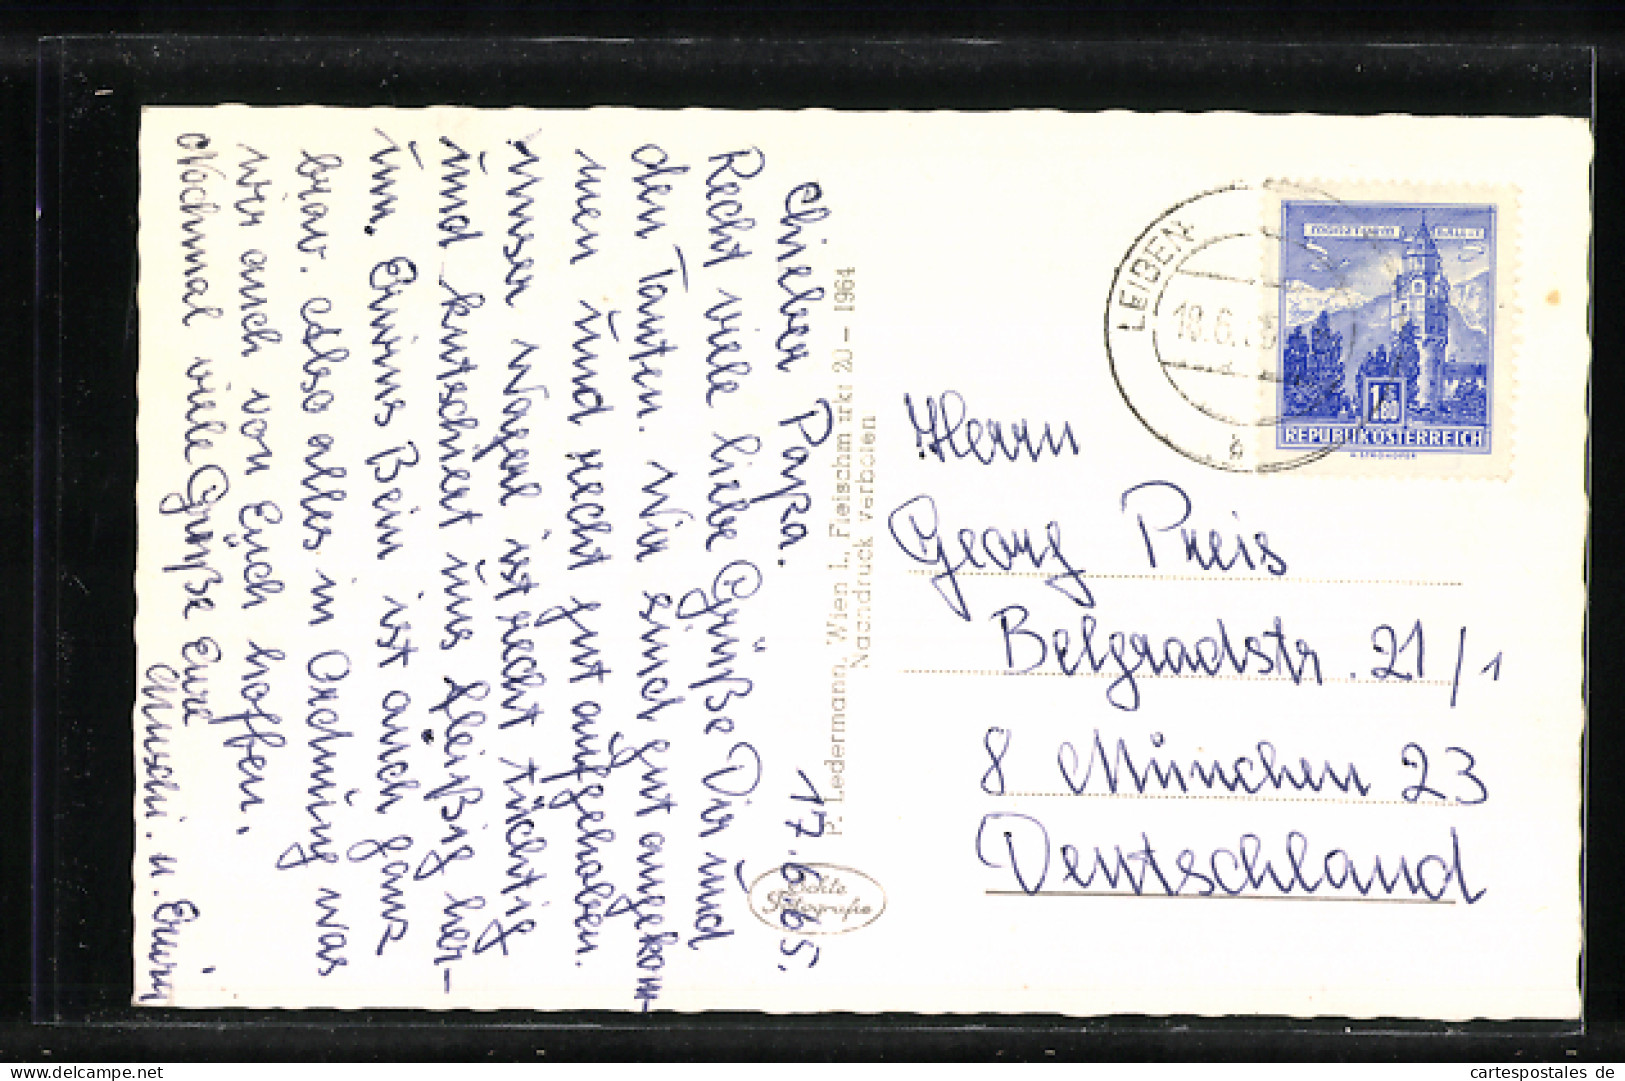 Lieber Papa. 17.6.65.
Recht viele liebe Grüße Dir und
den Tanten. Wir sind gut angekom-
men und recht gut aufgehoben.
unser Wagen ist recht tüchtig
und kutschiert uns fleißig her-
um. Erwins Bein ist auch ganz
brav. Also alles in Ordnung was
wir auch von Euch hoffen.
Nochmal viele Grüße Eure
Muschi. u. Erwin
P. Ledermann, Wien I., Fleischmarkt 20 – 1964
Nachdruck verboten
Echte
Fotografie
LEIBEN
18.6.
REPUBLIK ÖSTERREICH
1.80
Herrn
Georg Preis
Belgradstr. 21/1
8 München 23
Deutschland
cartespostales de